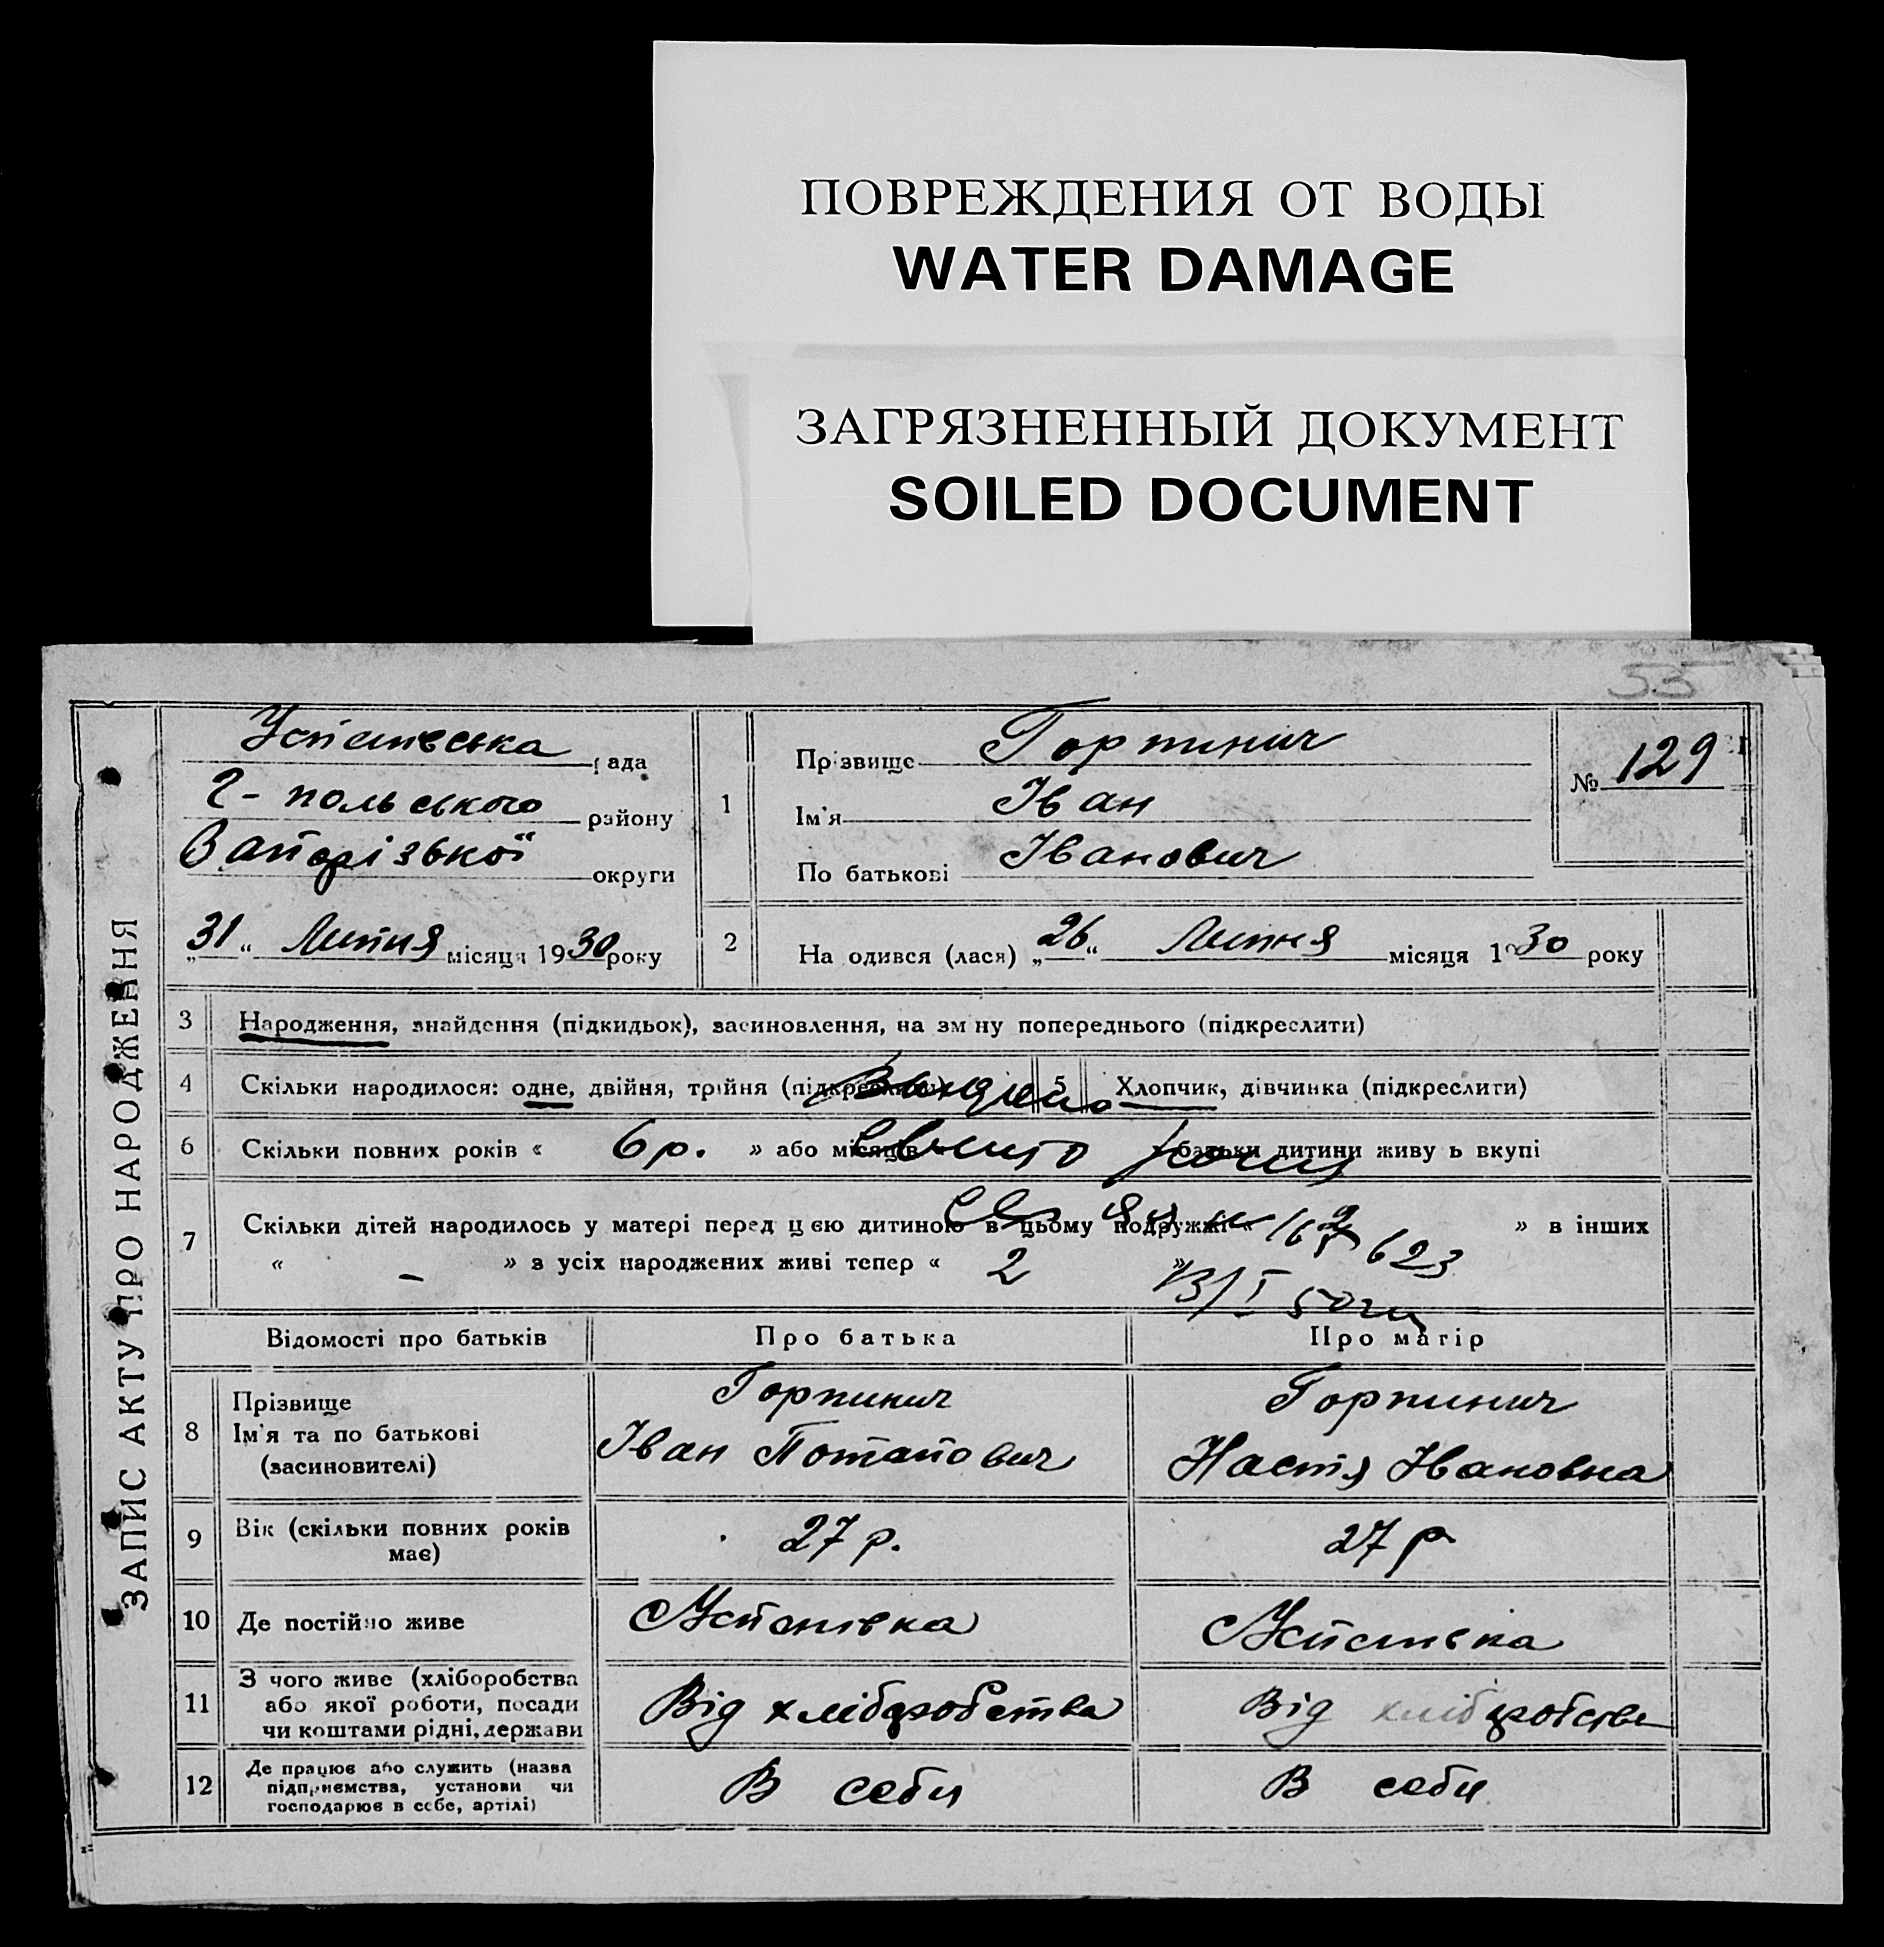 ПОВРЕЖДЕНИЯ ОТ ВОДЫ
WATER DAMAGE
ЗАГРЯЗНЕННЫЙ ДОКУМЕНТ
SOILED DOCUMENT
53
ЗАПИС АКТУ ПРО НАРОДЖЕННЯ
Успенівська рада
Г-польського району
Запорізької округи
„31“ Липня місяця 1930 року
1
Прізвище Горпинич
Ім'я Іван
По батькові Іванович
№ 129
2 На одився (лася) „26“ Липня місяця 1930 року
3 Народження, знайдення (підкидьок), засиновлення, на зміну попереднього (підкреслити)
4 Скільки народилося: одне, двійня, трійня (підкреслити)
5 Хлопчик, дівчинка (підкреслити)
Выдано
6 Скільки повних років « 6 р. » або місяців батьки дитини живу ь вкупі
7 Скільки дітей народилось у матері перед цією дитиною в цьому подружжі « 2 » в інших
« – » з усіх народжених живі тепер « 2 »
623
Відомості про батьків
Про батька
Про матір
8 Прізвище
Ім'я та по батькові
(засиновителі)
Горпинич
Іван Потапович
Горпинич
Настя Ивановна
9 Вік (скільки повних років
має)
27 р.
27 р
10 Де постійно живе
с Успенівка
с Успенівка
11 З чого живе (хліборобства
або якої роботи, посади
чи коштами рідні, держави
Від хліборобства
Від хліборобства
12 Де працює або служить (назва
підприємства, установи чи
господарює в себе, артілі)
В себи
В себи